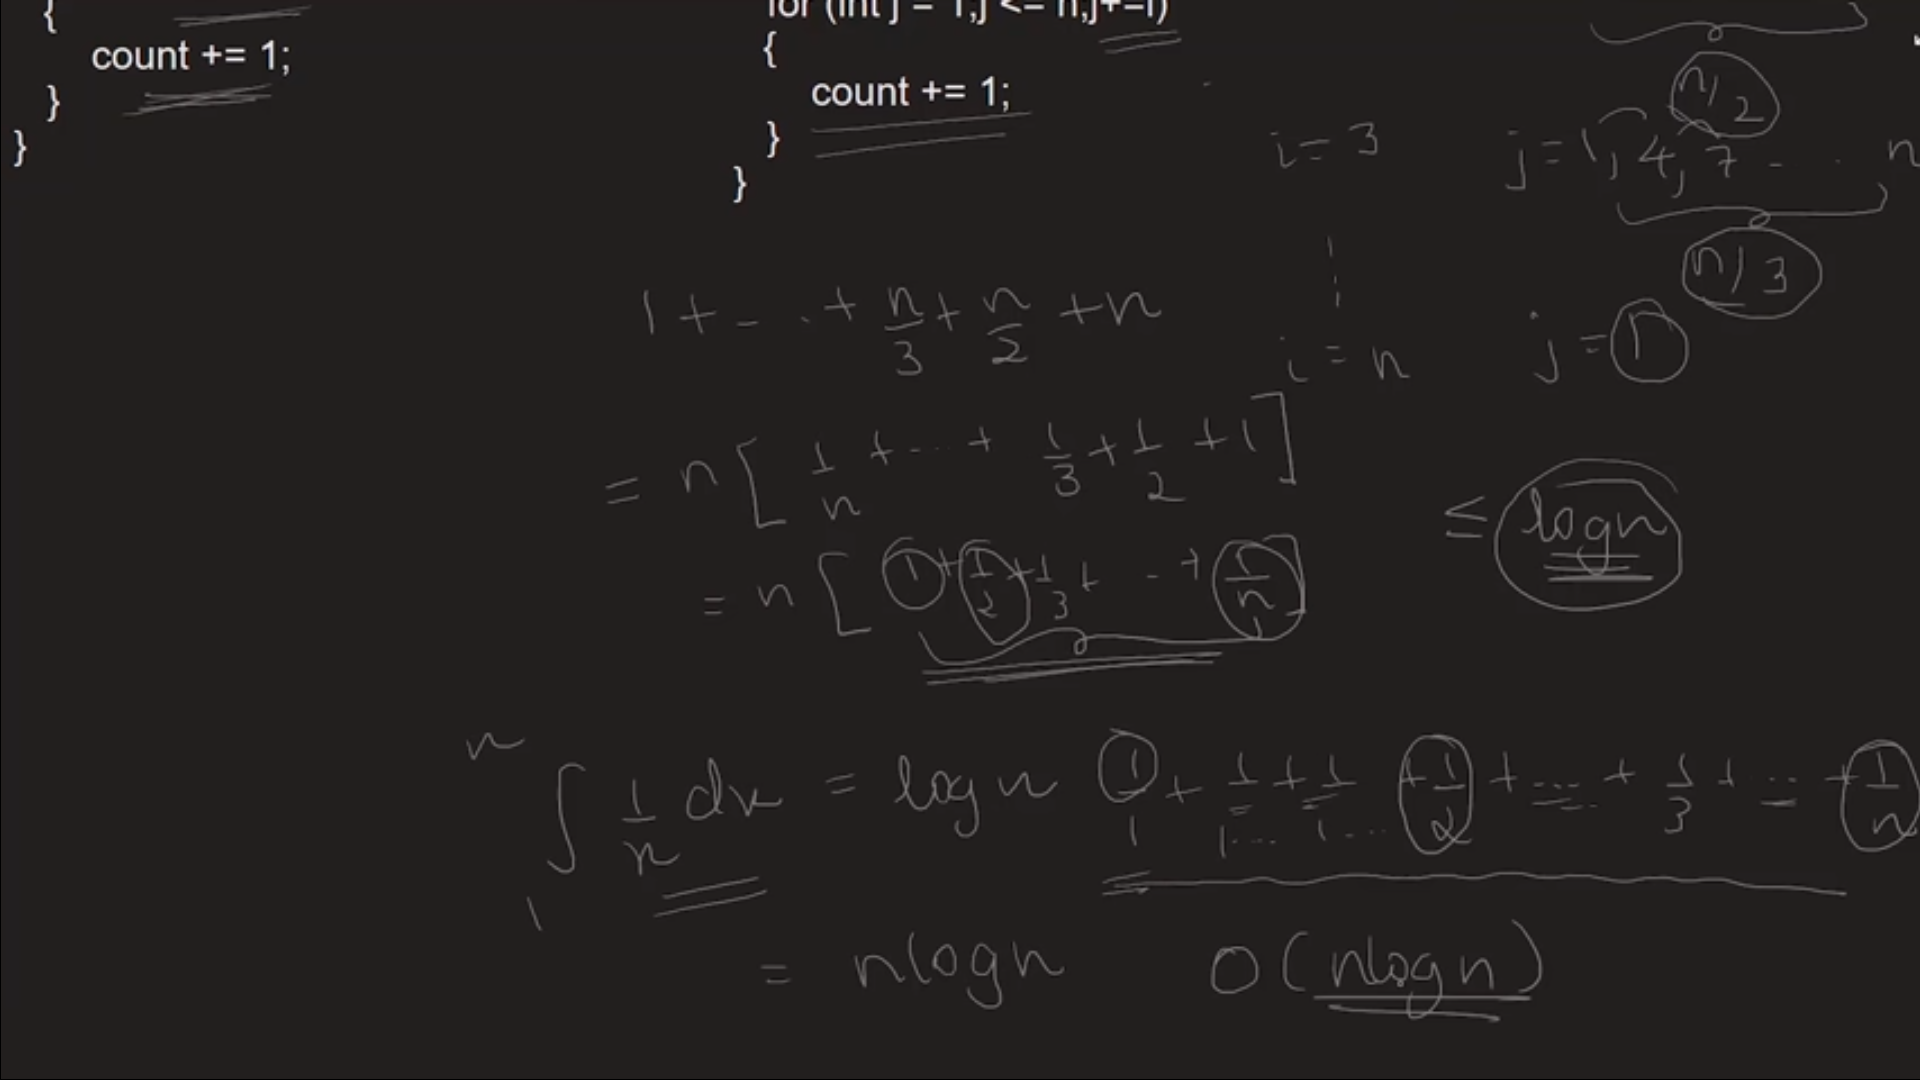 {
count += 1;
}
}
for (int j = 1;j <= n;j+=i)
{
count += 1;
}
}
n/2
i = 3 j = 1, 4, 7 - . . n
n/3
i = n j = 1
1 + - . . + n/3 + n/2 + n
= n [ 1/n + ... + 1/3 + 1/2 + 1 ]
= n [ 1 + 1/2 + 1/3 + - - + 1/n ]
≤ logn
∫ 1 n 1/x dx = logn 1/1 + 1/1... + 1/1... + 1/2 + ... + 1/3 + ... + 1/n
= nlogn O(nlogn)